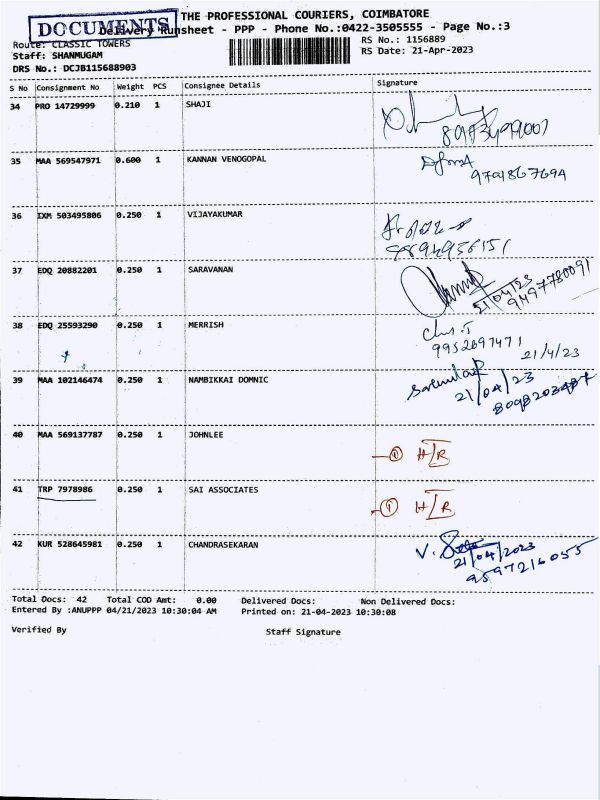 THE PROFESSIONAL COURIERS, COIMBATORE
DOCUMENTS
Delivery Runsheet - PPP - Phone No.:0422-3505555 - Page No.:3
Route: CLASSIC TOWERS RS No.: 1156889
Staff: SHANMUGAM RS Date: 21-Apr-2023
DRS No.: DCJB115688903
S No Consignment No Weight PCS Consignee Details Signature
34 PRO 14729999 0.210 1 SHAJI
35 MAA 569547971 0.600 1 KANNAN VENOGOPAL
9791867694
36 IXM 503495806 0.250 1 VIJAYAKUMAR
37 EDQ 20882201 0.250 1 SARAVANAN
21/04/23
9497780091
38 EDQ 25593290 0.250 1 MERRISH
9952697471
21/4/23
39 MAA 102146474 0.250 1 NAMBIKKAI DOMNIC
21/04/23
8098203487
40 MAA 569137787 0.250 1 JOHNLEE
H/R
41 TRP 7978986 0.250 1 SAI ASSOCIATES
H/R
42 KUR 528645981 0.250 1 CHANDRASEKARAN
V.
21/04/2023
9597216055
Total Docs: 42 Total COD Amt: 0.00 Delivered Docs: Non Delivered Docs:
Entered By :ANUPPP 04/21/2023 10:30:04 AM Printed on: 21-04-2023 10:30:08
Verified By Staff Signature